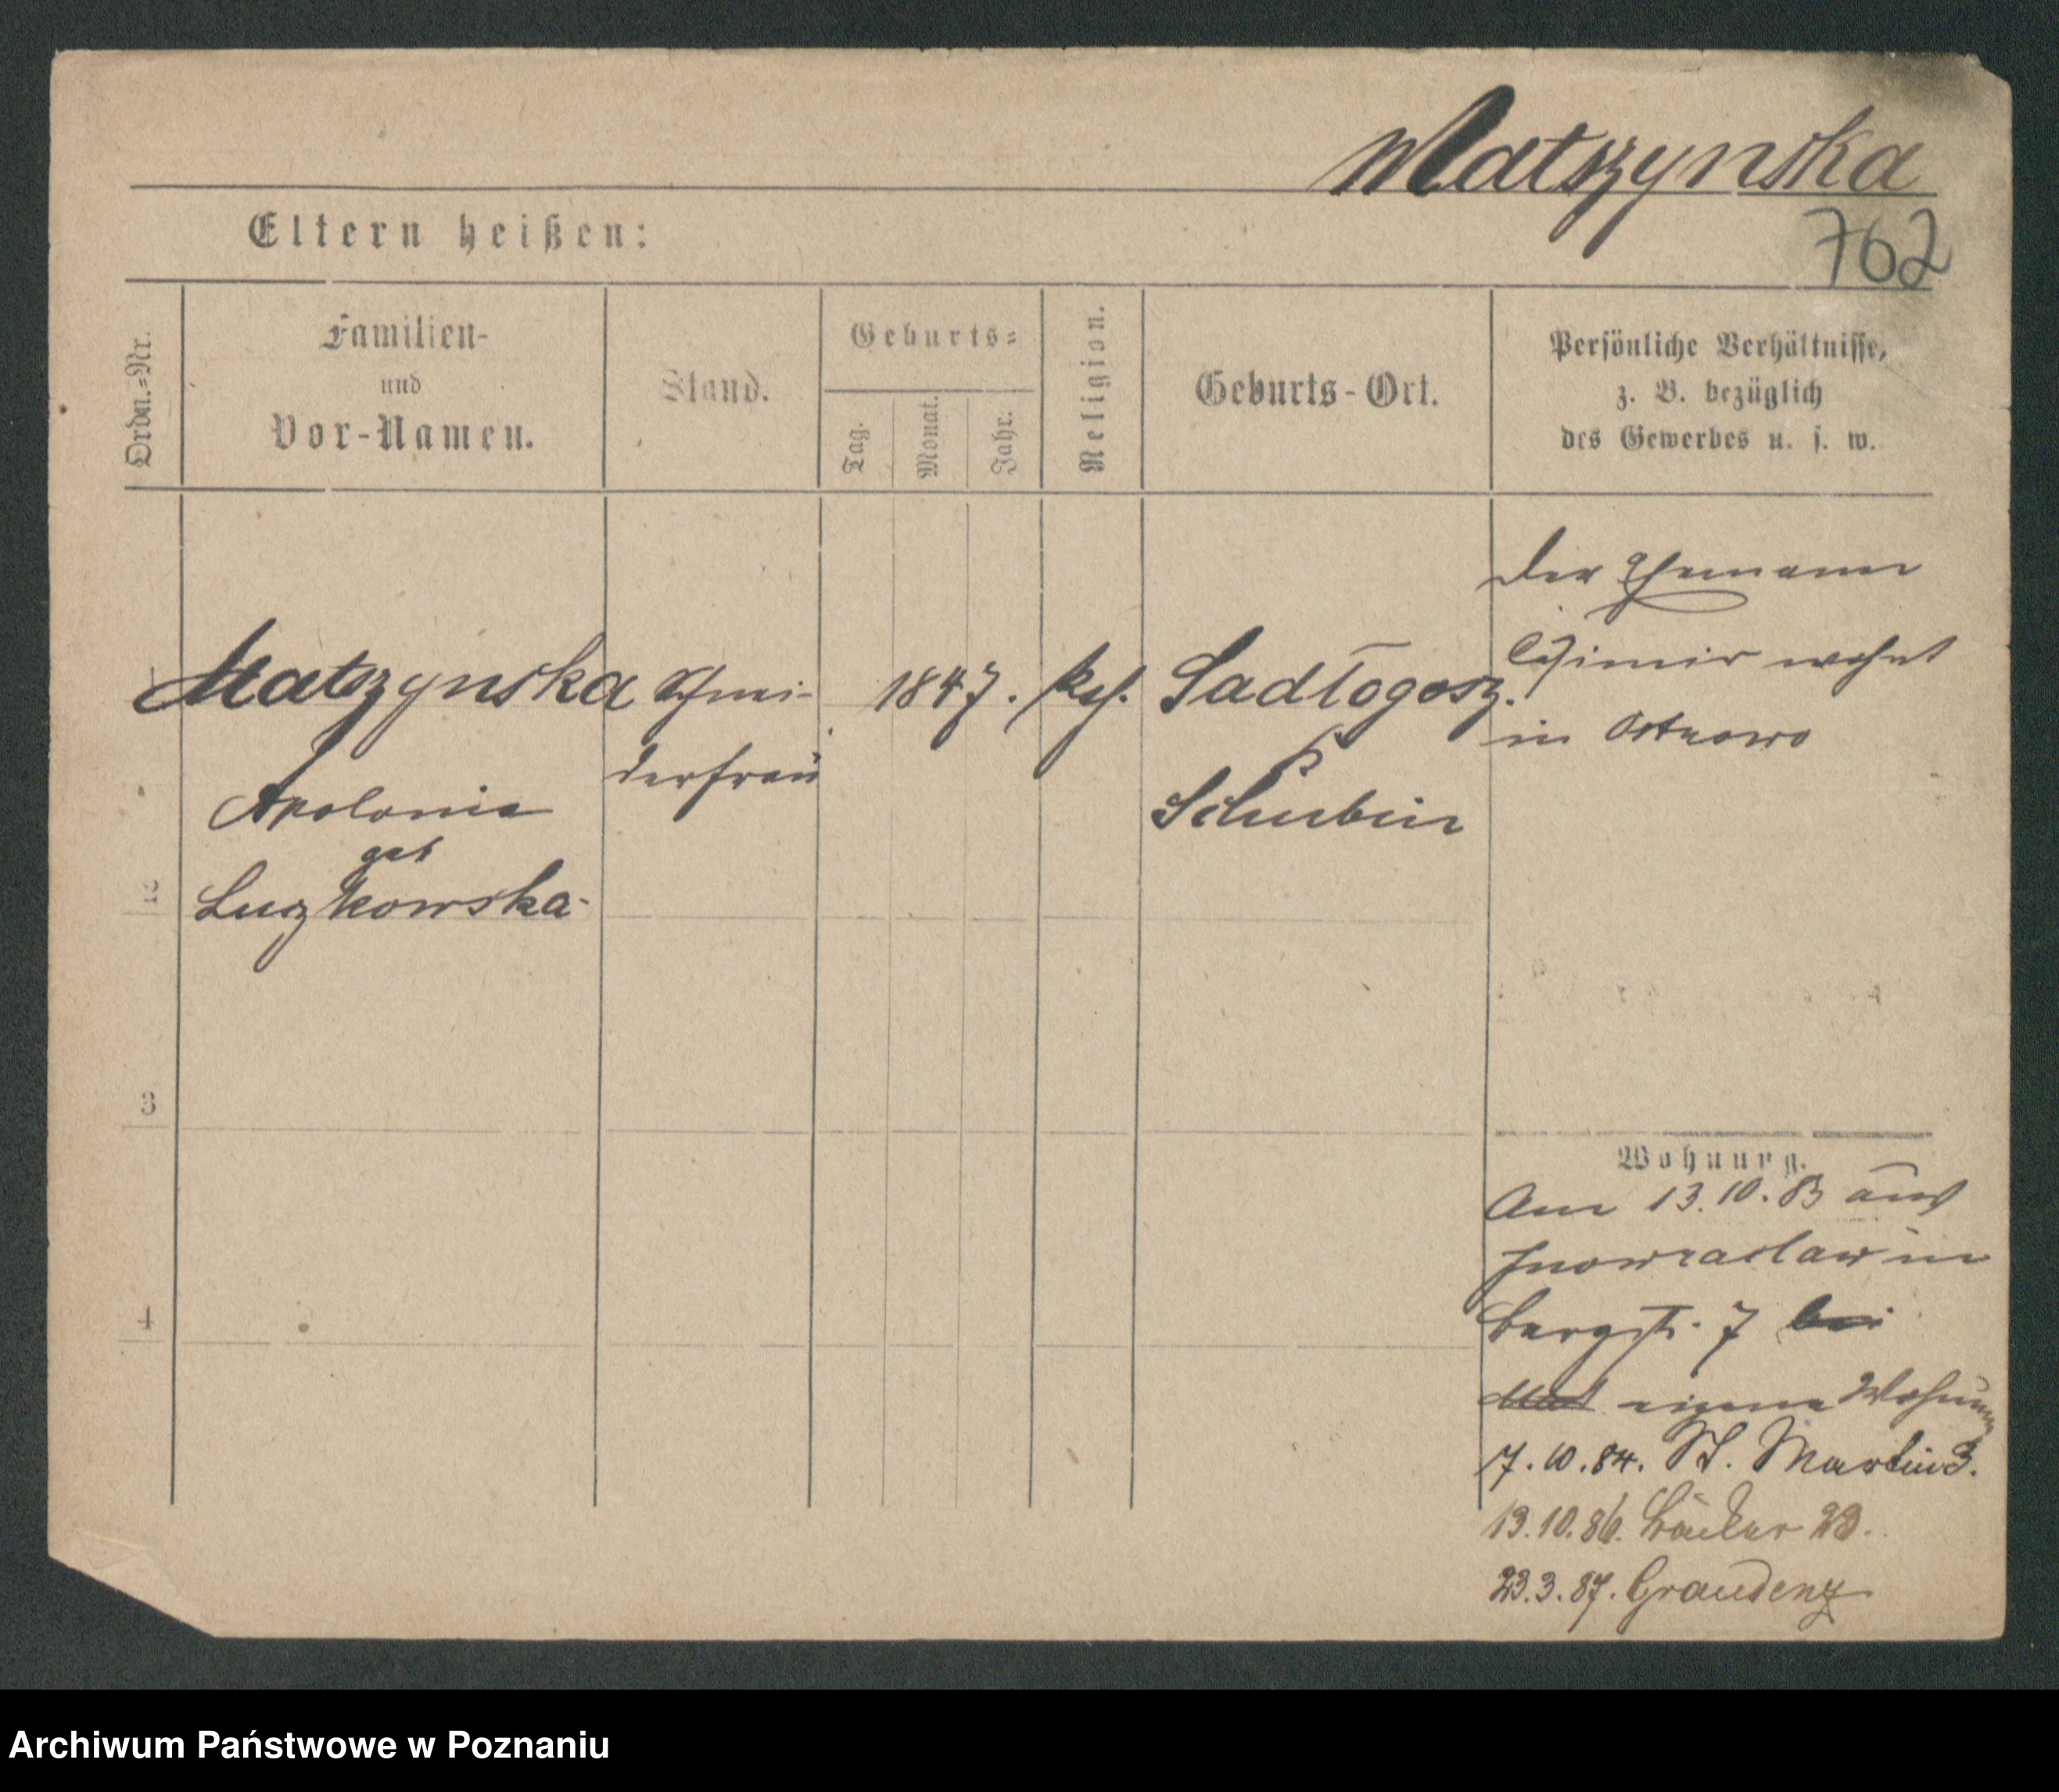 Matszynska
762
Eltern heißen:
Ordn.=Nr.
Familien-
und
Vor-Namen.
Stand.
Geburts=
Tag.
Monat.
Jahr.
Religion.
Geburts-Ort.
Persönliche Verhältnisse,
z. B. bezüglich
des Gewerbes u. s. w.
1
Matszynska
Apolonia
geb
Luczkowska
Schnei-
derfrau
1847.
kath.
Sadłogosz.
Schubin
Der Ehemann
Casimir wohnt
in Ostrowo
2
3
4
Wohnung.
Am 13.10.83 aus
Inowraclaw in
Bergstr. 7 bei
eigene Wohnung
7.10.84. St. Martin 3.
13.10.86. Bäcker 23.
23.3.87. Graudenz
Archiwum Państwowe w Poznaniu